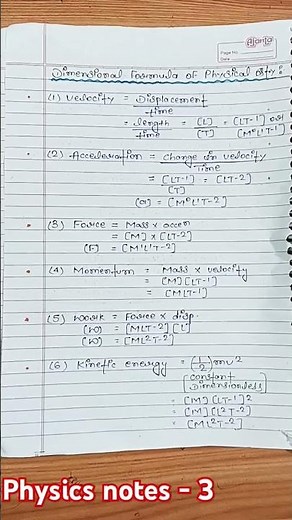 ajanta
Page No.
Date
Dimensional Formula of Physical Qty:
(1) Velocity = Displacement
time
= length = [L] = [LT-1] or
time [T] [M⁰L¹T-1]
(2) Acceleration = Change in velocity
Time
= [LT-1] = [LT-2]
[T]
(a) = [M⁰L¹T-2]
(3) Force = Mass x accen
= [M] x [LT-2]
(F) = [M¹L¹T-2]
(4) Momentum = Mass x velocity
= [M][LT-1]
= [MLT-1]
(5) Work = Force x disp.
(W) = [MLT-2] [L]
(W) = [ML²T-2]
(6) Kinetic energy = (1/2) mv²
[constant
Dimensionless]
= [M] [LT-1]²
= [M] [L²T-2]
= [ML²T-2]
Physics notes - 3